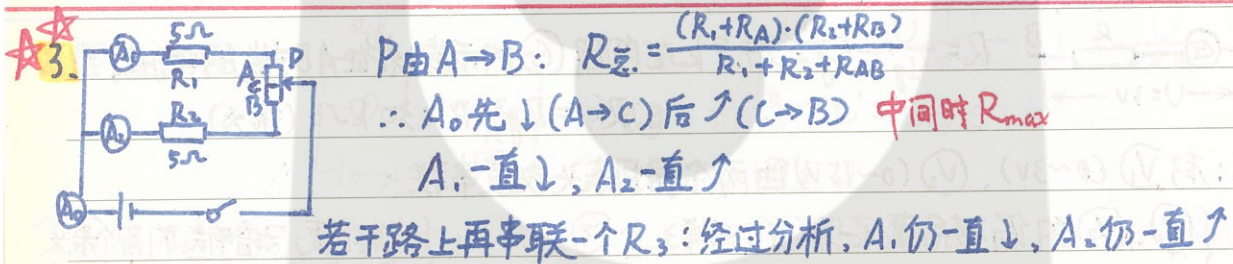 ☆☆3.
A₁ 5Ω R₁
A C B P
A₂ R₂ 5Ω
A₀
P由A→B: R总.= (R₁+RA)·(R₂+RB) / R₁+R₂+RAB
∴A₀先↓(A→C)后↗(C→B) 中间时Rmax
A₁一直↓, A₂一直↗
若干路上再串联一个R₃:经过分析, A₁仍一直↓, A₂仍一直↗